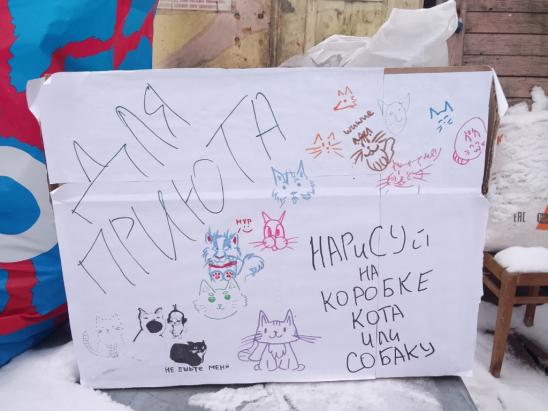 ДЛЯ
ПРИЮТА
МУР
НАРИСУй
НА
КОРОБКЕ
КОТА
или
СОБАКУ
НЕ ЕШЬТЕ МЕНЯ
EAC